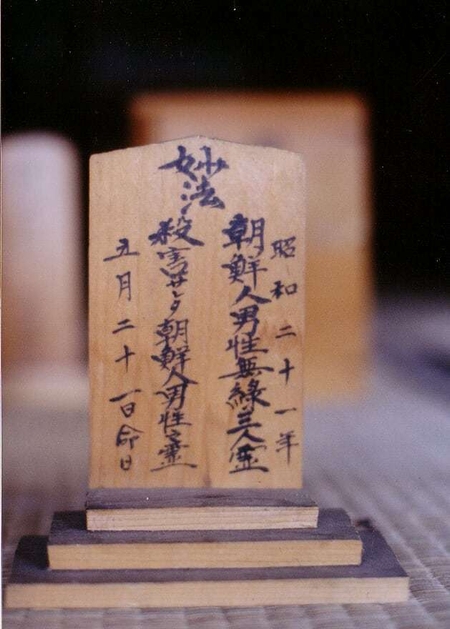 妙法
昭和二十一年
朝鮮人男性無縁三人霊
殺害サレタ朝鮮人男性之霊
五月二十一日命日